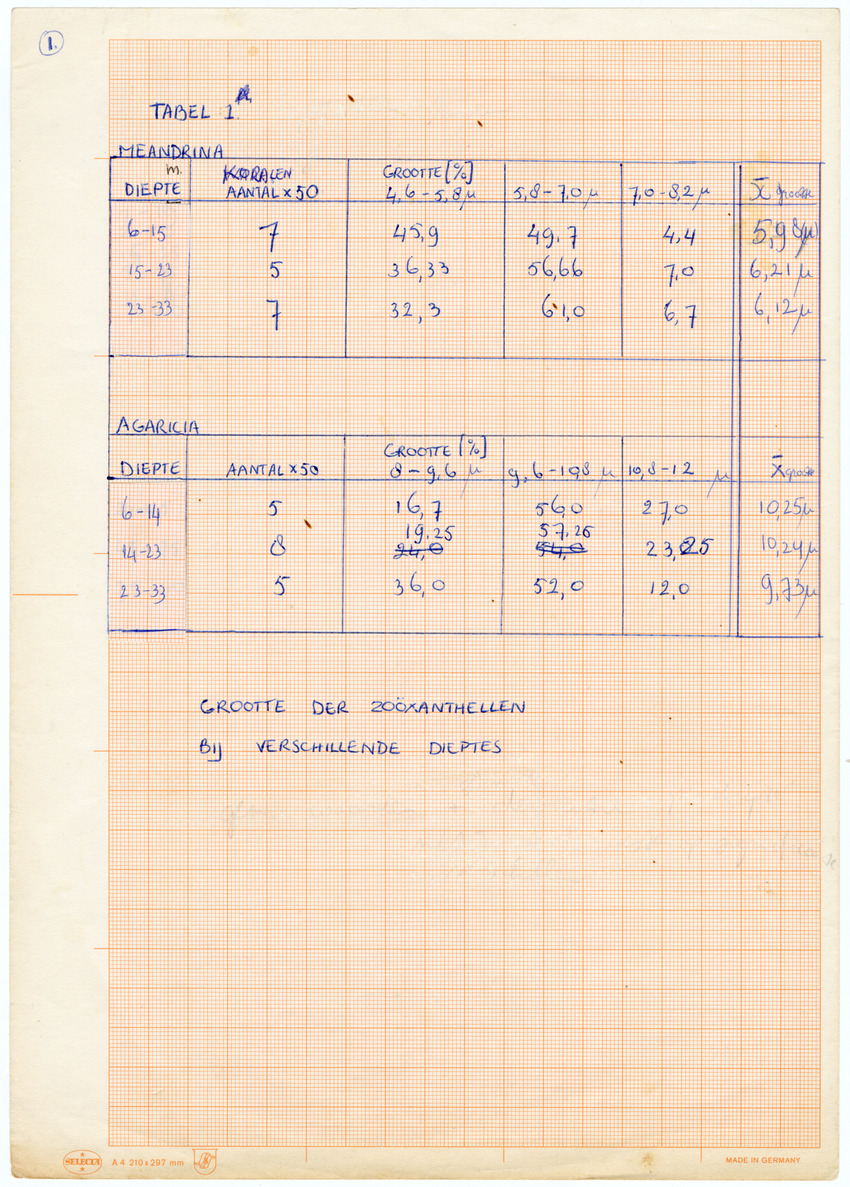 1.
TABEL 1
MEANDRINA
m. KORALEN GROOTTE [%]
DIEPTE AANTAL x 50 4,6-5,8 µ 5,8-7,0 µ 7,0-8,2 µ x̄ grootte
6-15 7 45,9 49,7 4,4 5,98(µ)
15-23 5 36,33 56,66 7,0 6,21 µ
23-33 7 32,3 61,0 6,7 6,12 µ
AGARICIA
GROOTTE [%]
DIEPTE AANTAL x 50 8-9,6 µ 9,6-10,8 µ 10,8-12 µ x̄ grootte
6-14 5 16,7 56,0 27,0 10,25 µ
19.25 57,25
14-23 8 24,0 54,0 23,25 10,24 µ
23-33 5 36,0 52,0 12,0 9,73 µ
GROOTTE DER ZOÖXANTHELLEN
BIJ VERSCHILLENDE DIEPTES
SELECTA A 4 210 x 297 mm MADE IN GERMANY